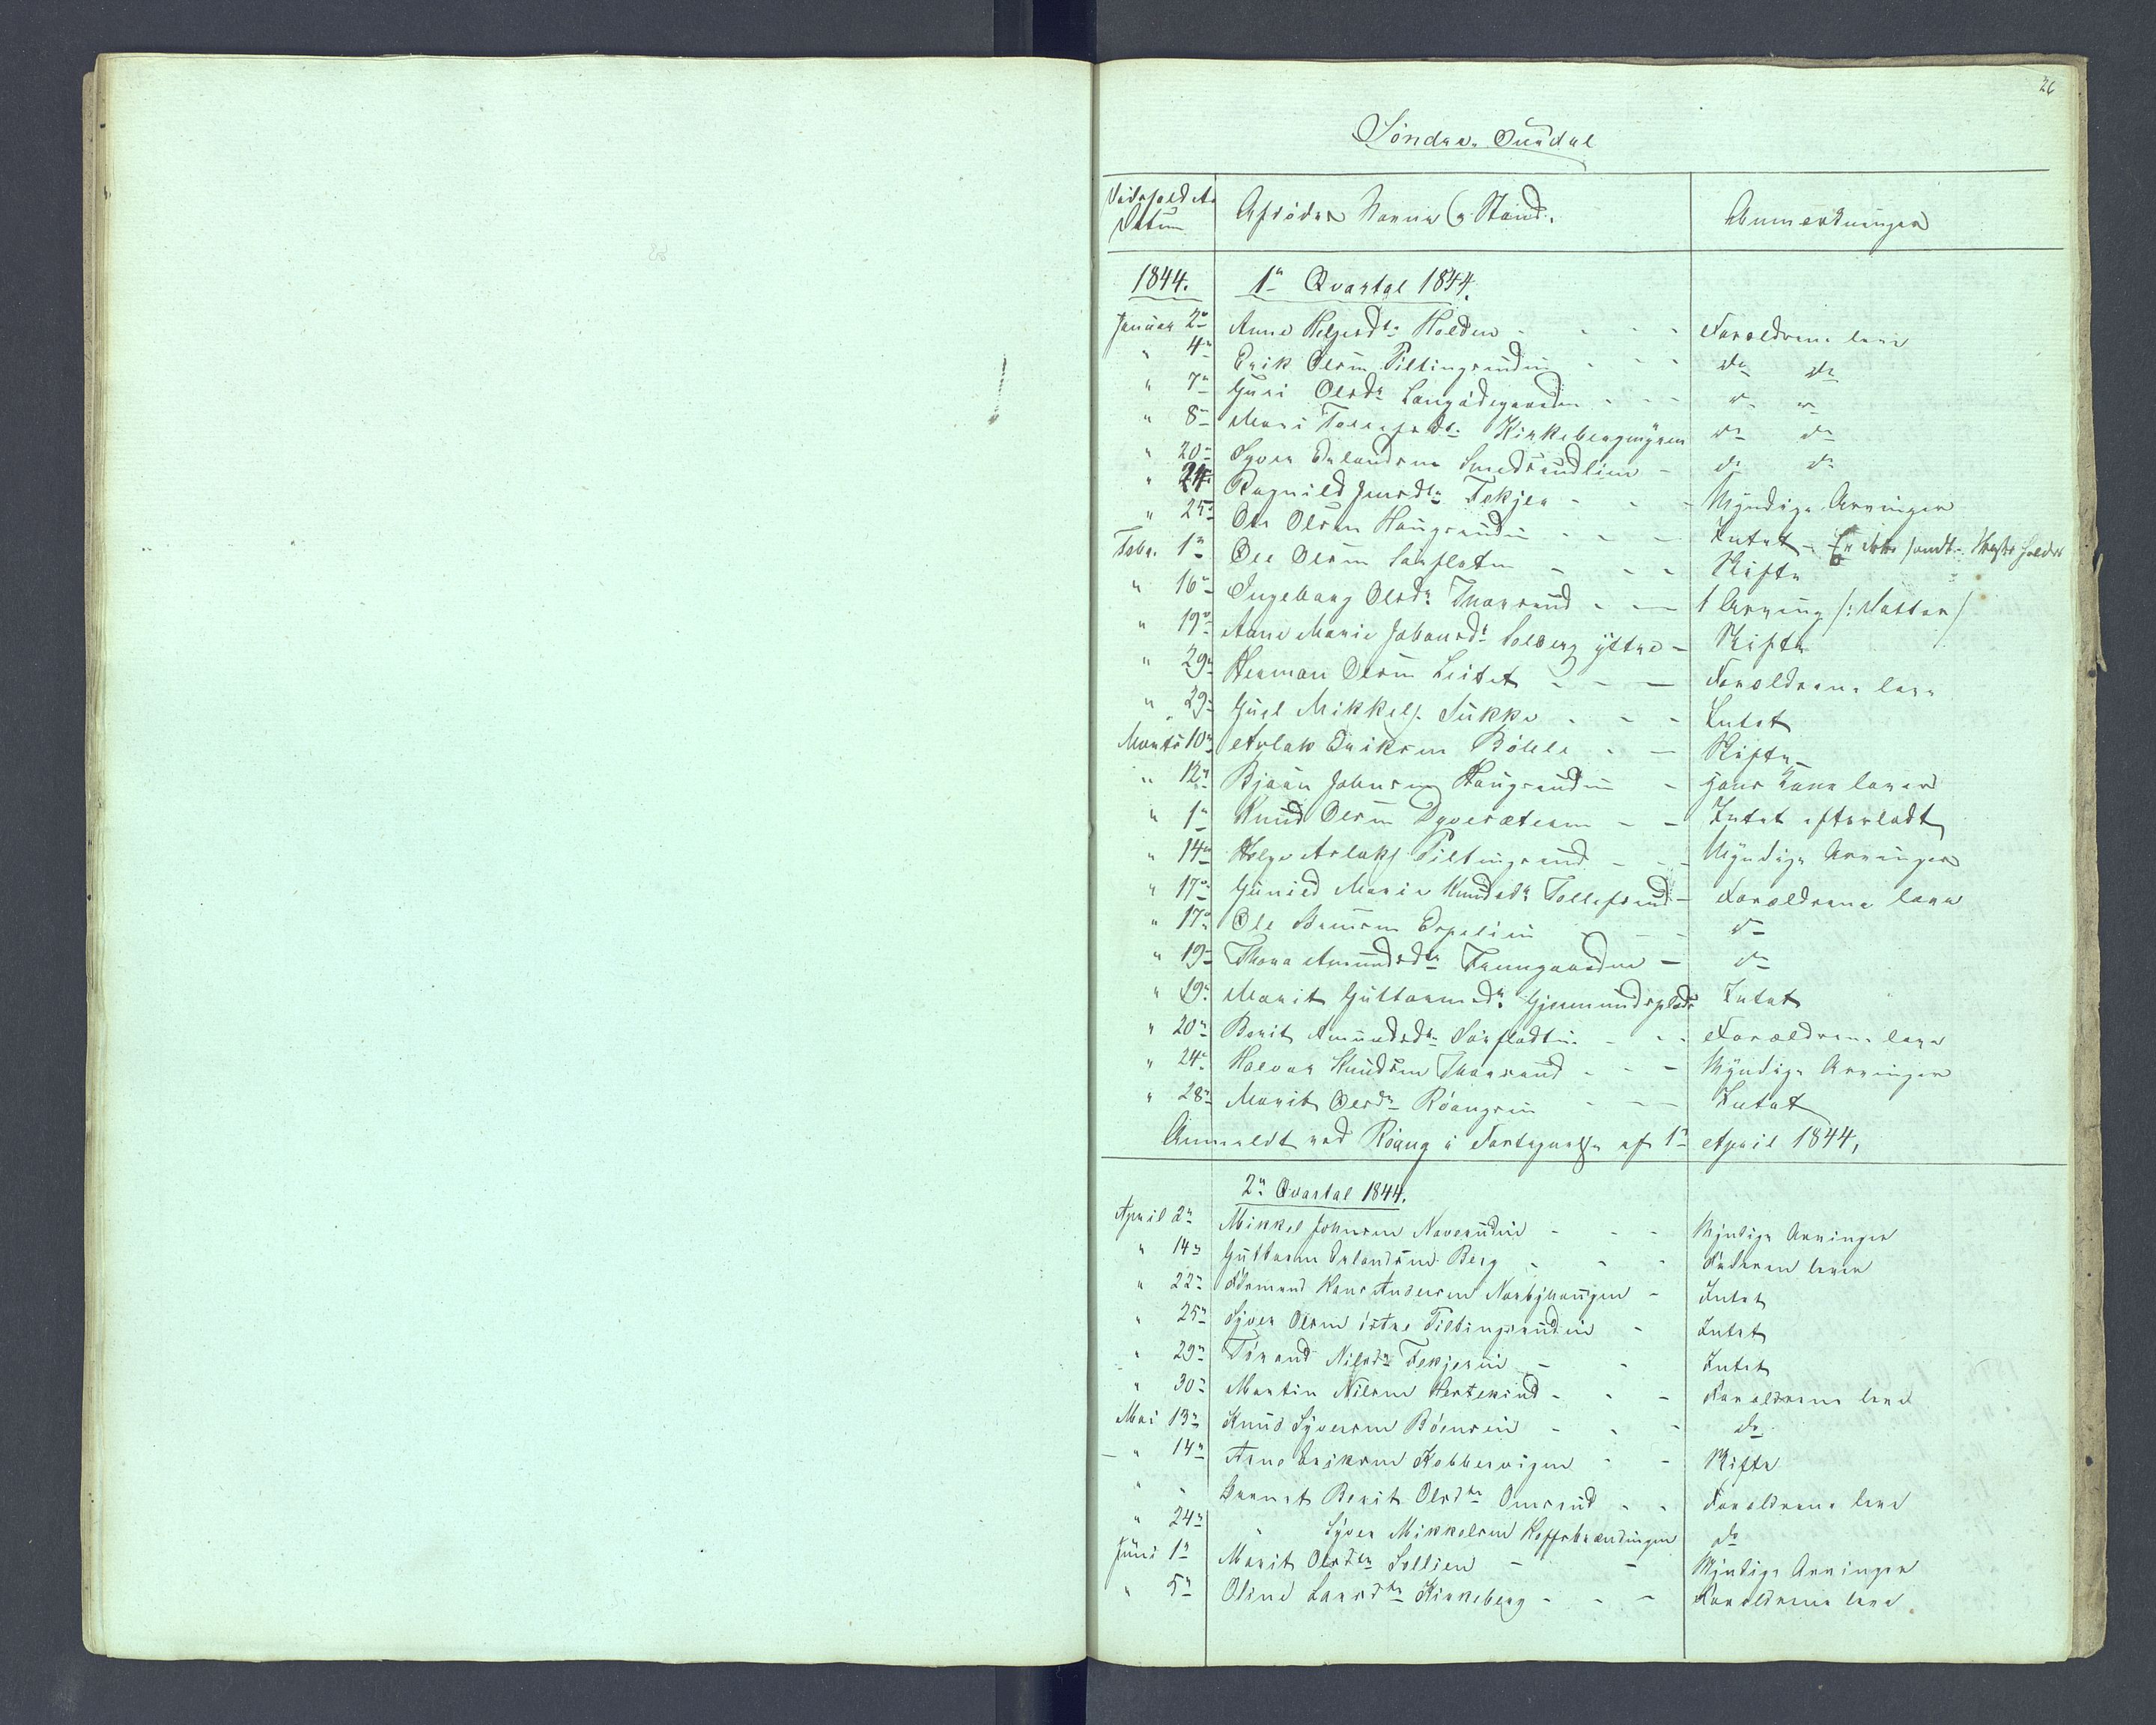 26
Søndre Ourdal
Dødsfaldets
Datum
Afdødes Navne og Stand.
Anmerkninger
1844. 1e Qvartal 1844.
Januar 2n Anne Helgesdtr Holden - - - Forældrene leve
" 4n Erik Olsen Piltingsrudin - - do do
" 7n Guri Olsdr Langødegaarden - - - do do
" 8n Mari Tollefsdtr Kirkebergmÿren do do
" 20n Syver Erlandsen Smedsrudlien - do do
" 24n Ragnild Jensdtr Fekjer - - - Mÿndige Arvinger
" 25n Ole Olsen Haugsrudin - - - Intet - Er ikke sandt. Skifte holdes
Febr. 1n Ole Olsen Sørfleten - - - Skifte
" 16n Ingeborg Olsdr Thorsrud - - 1 Arving /: Datter /
" 19n Anne Marie Johansdr Solberg ÿttre - Skifte
" 29n Herman Olsen Leitet - - - Forældrene leve
" 29n Gul Mikkels. Sukke - - - Intet
Marts 10n Aslak Eriksen Bøhle - - Skifte
" 12n Bjørn Johnsen Haugsrudin - hans Kone lever
" 1n Knud Olsen Dyvesæteren - - Intet efterladt
" 14n Helge Aslaks. Piltingsrud - - - Mÿndige Arvinger
" 17n Gunild Marie Knudsdr Tollefsrud - Forældrene leve
" 17n Ole Espelien - - - do
" 19n Thora Amundsdtr Framgaarden - do
" 19n Marit Guttormsdr Gjermundsplads Intet
" 20n Berit Amundsdtr Sørfladtin - - - Forældrene leve
" 24n Halvor Knudsen Thorsrud - - - Mÿndige Arvinger
" 28n Marit Olsdr Røangrin - - - Intet
Anmeldt ved Røang i Fortegnelse af 1n April 1844,
2n Qvartal 1844.
April 2n Mikkel Johnsen Naverudin - - - Mÿndige Arvinger
" 14n Guttorm Erlandsen Berg - - - Faderen lever
" 22n Hans Andersen Nordbÿhaugen - Intet
" 25n Syver Olsen østre Piltingsrudin - Intet
" 29n Torand Nilsdr Fekjerin - - Intet
" 30n Martin Nilsen Hertekind - - - Forældrene leve
Mai 13n Knud Sÿversen Bøensrin - - - do
- " 14n Arne Eriksen Kobbervigen - - Skifte
" - Barnet Berit Olsdtr Omsrud - - Forældrene leve
" 24n " Sÿver Mikkelsen Hoffsbrændingen do
Juni 1n Marit Olsdtr Sollien - - Mÿndige Arvinger
" 5n Oline Larsdtr Kirkeberg - - - Forældrene leve